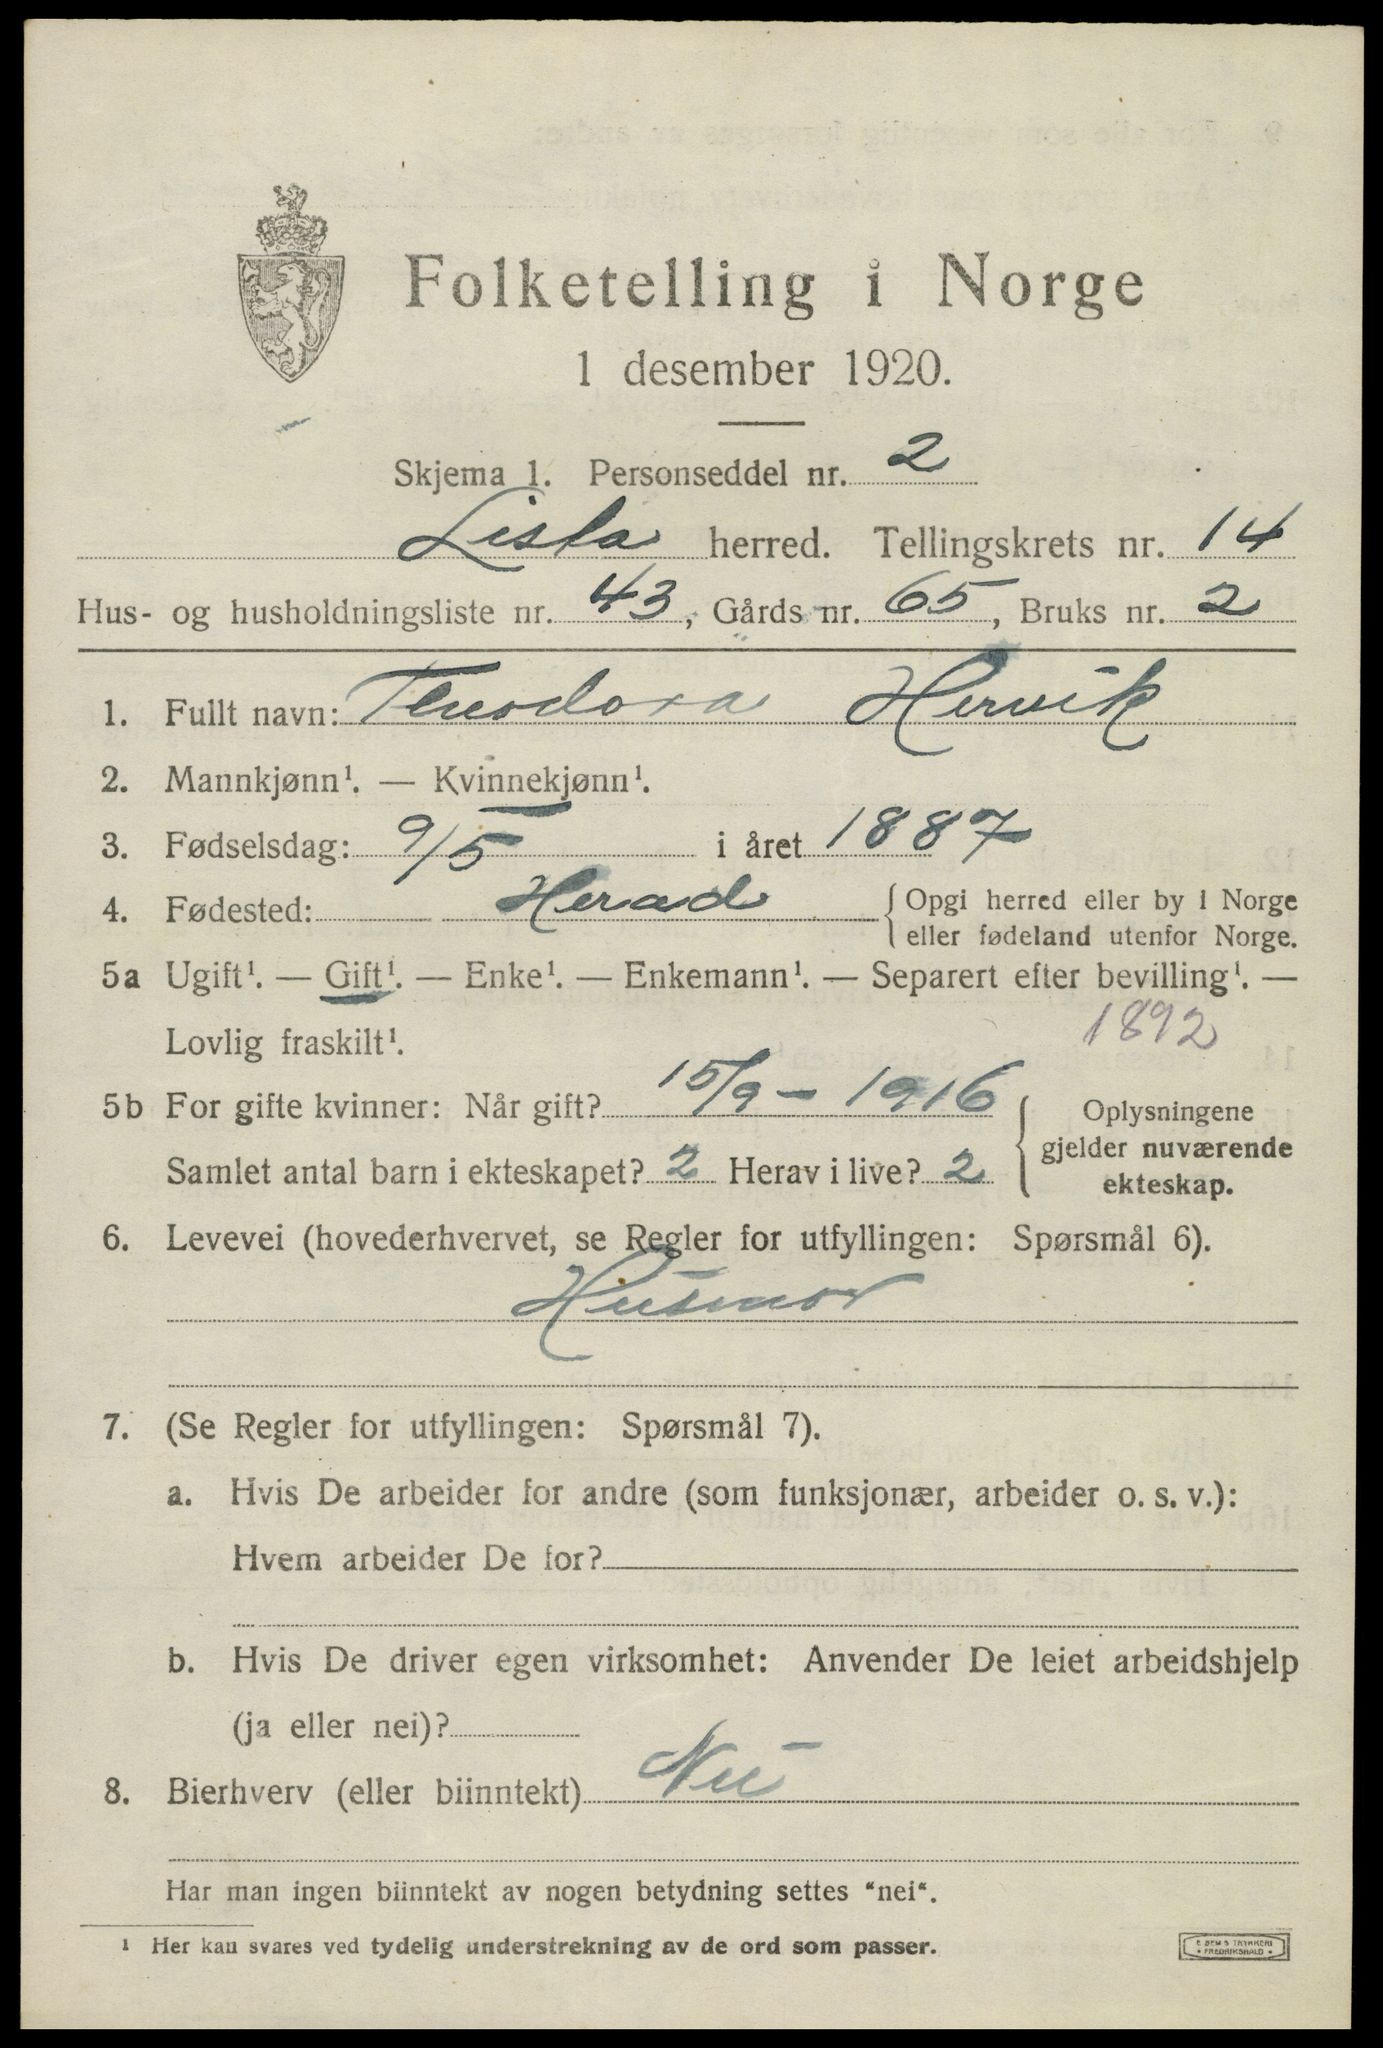 Folketelling i Norge
1 desember 1920.
Skjema 1. Personseddel nr. 2
Lista herred. Tellingskrets nr. 14
Hus- og husholdningsliste nr. 43, Gårds nr. 65, Bruks nr. 2
1. Fullt navn: Theodora Hervik
2. Mannkjønn¹. — Kvinnekjønn¹.
3. Fødselsdag: 9/5 i året 1887
4. Fødested: Herad {Opgi herred eller by i Norge
eller fødeland utenfor Norge.
5a Ugift¹. — Gift¹. — Enke¹. — Enkemann¹. — Separert efter bevilling¹. —
Lovlig fraskilt¹. 1892
5b For gifte kvinner: Når gift? 15/9 – 1916 Oplysningene
gjelder nuværende
Samlet antal barn i ekteskapet? 2 Herav i live? 2 ekteskap.
6. Levevei (hovederhvervet, se Regler for utfyllingen: Spørsmål 6).
Husmor
7. (Se Regler for utfyllingen: Spørsmål 7).
a. Hvis De arbeider for andre (som funksjonær, arbeider o. s. v.):
Hvem arbeider De for?
b. Hvis De driver egen virksomhet: Anvender De leiet arbeidshjelp
(ja eller nei)?
8. Bierhverv (eller biinntekt) Nei
Har man ingen biinntekt av nogen betydning settes "nei".
¹ Her kan svares ved tydelig understrekning av de ord som passer.
FREDRIKSHALD